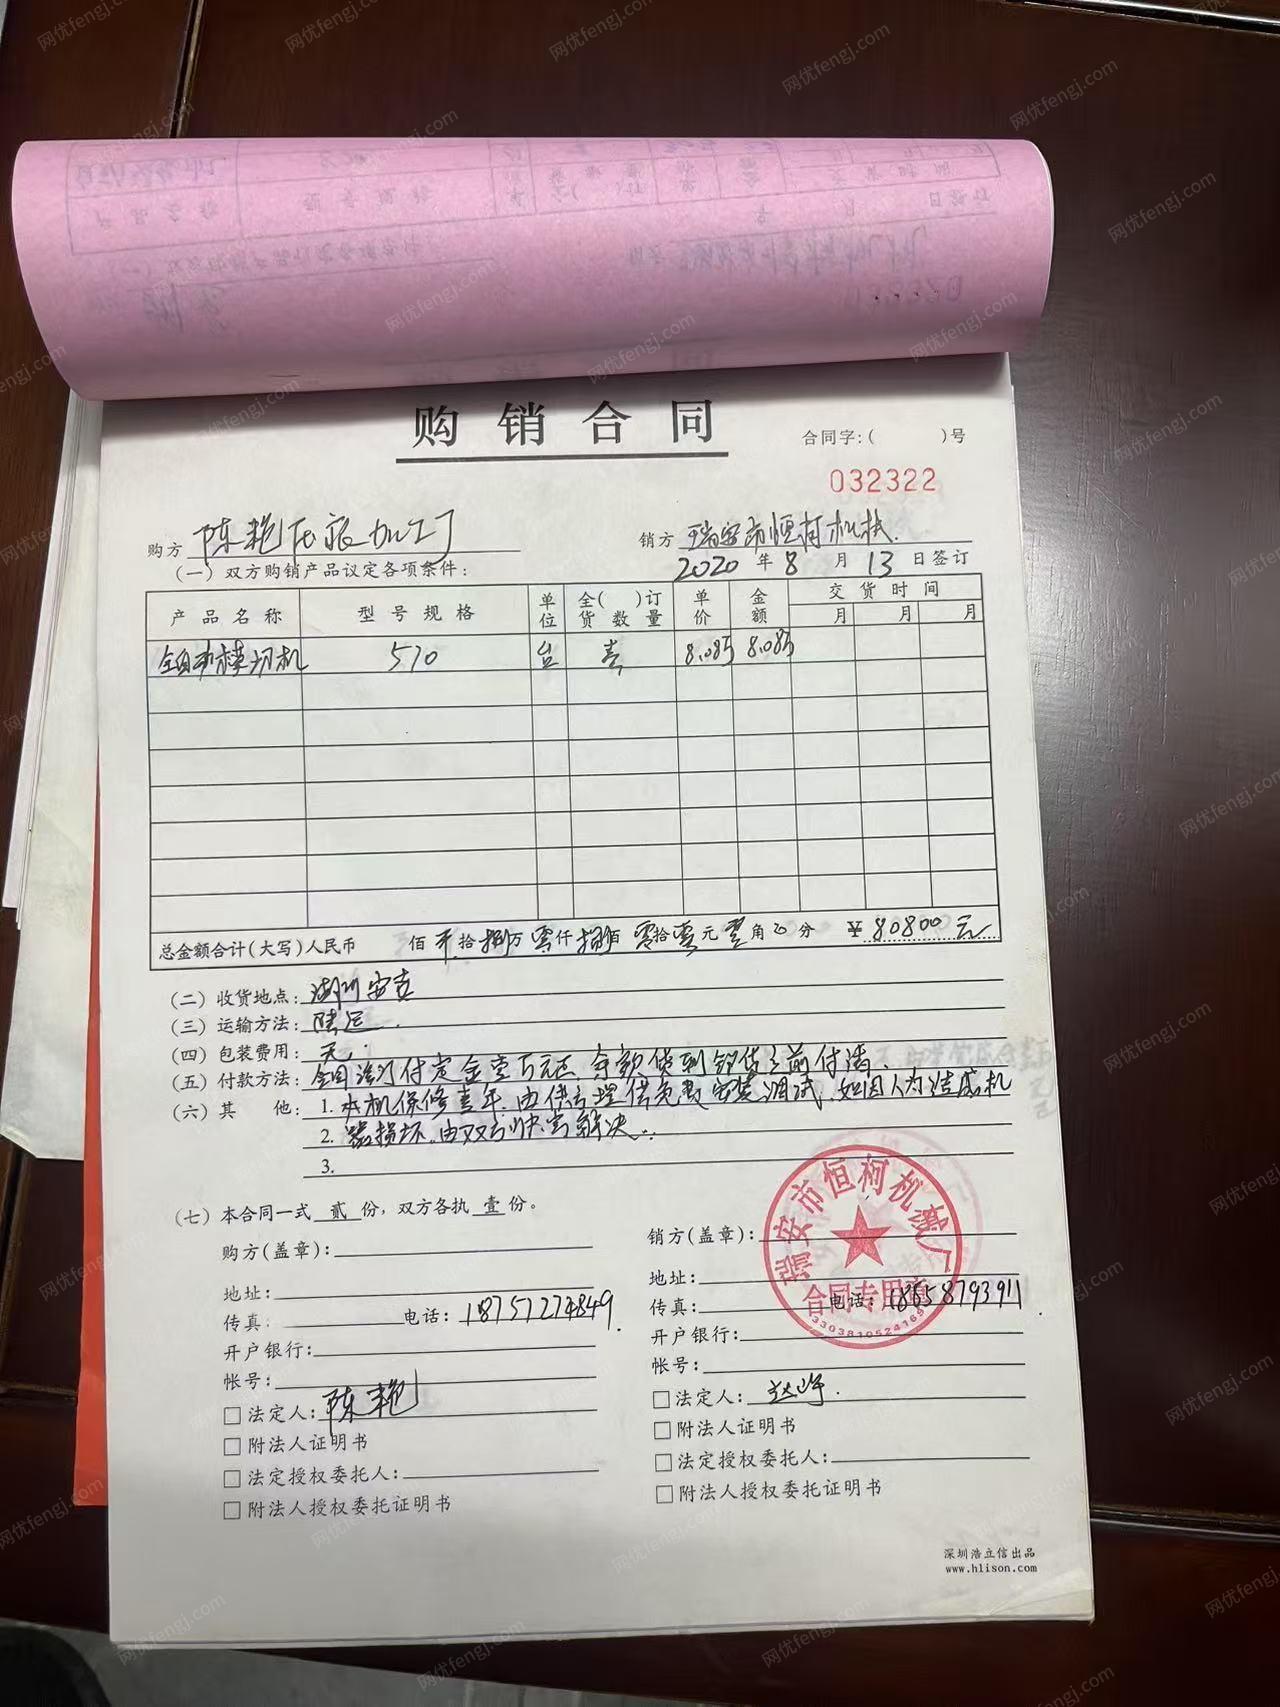 购销合同
合同字:( )号
032322
购方 陈艳压痕加工厂 销方 瑞安市恒柯机械.
(一)双方购销产品议定各项条件: 2020年8月13日签订
产品名称 型号规格 单位 全( )订货数量 单价 金额 交货时间
月 月 月
全自动模切机 570 台 壹 8.08万 8.08万
总金额合计(大写)人民币 佰 拾捌万零仟捌佰零拾零元零角 分 ¥80800元
(二)收货地点: 湖州安吉
(三)运输方法: 陆运.
(四)包装费用: 无.
(五)付款方法: 合同签订付定金壹万元正 余款货到卸货之前付清.
(六)其 他: 1.本机保修壹年.由供方提供免费安装调试.如因人为造成机
2.器损坏.由双方协商解决.
3.
(七)本合同一式贰份,双方各执壹份。
购方(盖章): 销方(盖章):
瑞安市恒柯机械厂
合同专用章
地址: 地址:
传真: 电话: 18757274849. 传真: 电话: 18658793911.
3303810524169
开户银行: 开户银行:
帐号: 帐号:
□法定人: 陈艳 □法定人:
□附法人证明书 □附法人证明书
□法定授权委托人: □法定授权委托人:
□附法人授权委托证明书 □附法人授权委托证明书
深圳浩立信出品
www.hlison.com
网优fengj.com